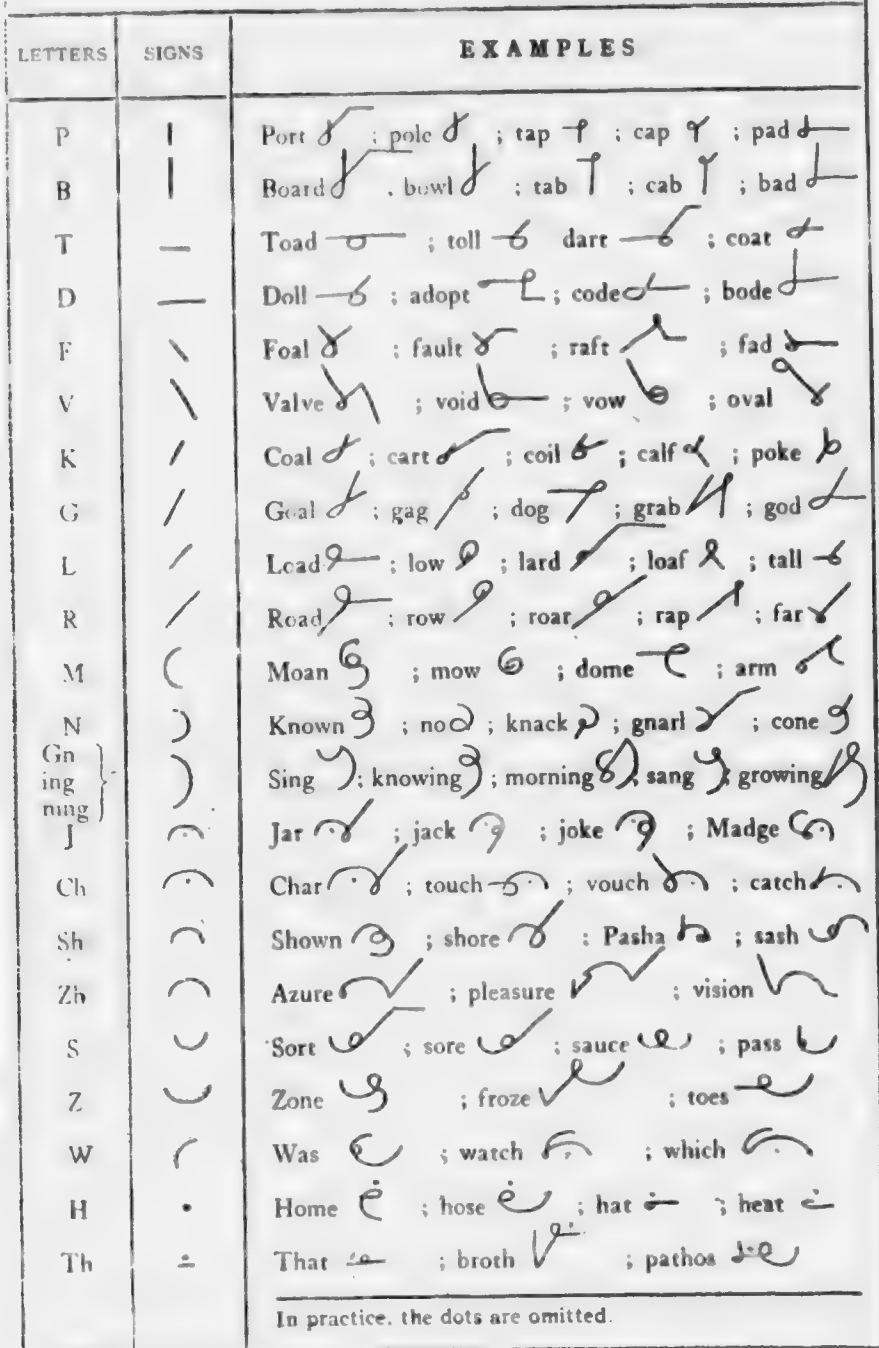 LETTERS SIGNS EXAMPLES
P Port ; pole ; tap ; cap ; pad
B Board . bowl ; tab ; cab ; bad
T Toad ; toll dart ; coat
D Doll ; adopt ; code ; bode
F Foal ; fault ; raft ; fad
V Valve ; void ; vow ; oval
K Coal ; cart ; coil ; calf ; poke
G Goal ; gag ; dog ; grab ; god
L Load ; low ; lard ; loaf ; tall
R Road ; row ; roar ; rap ; far
M Moan ; mow ; dome ; arm
N Known ; no ; knack ; gnarl ; cone
Gn
ing Sing ; knowing ; morning ; sang ; growing
ning
J Jar ; jack ; joke ; Madge
Ch Char ; touch ; vouch ; catch
Sh Shown ; shore : Pasha ; sash
Zh Azure ; pleasure ; vision
S Sort ; sore ; sauce ; pass
Z Zone ; froze ; toes
W Was ; watch ; which
H Home ; hose ; hat ; heat
Th That ; broth ; pathos
In practice. the dots are omitted.